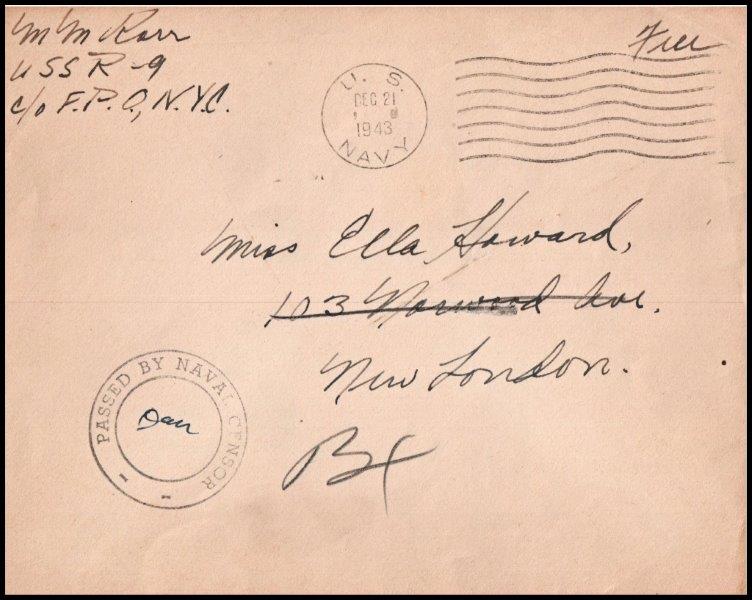 M M Karr
USS R-9
c/o F.P.O, N.Y.C.
Free
U. S.
DEC 21
1943
NAVY
Miss Ella Howard,
103 Norwood Ave.
New London.
PASSED BY NAVAL CENSOR